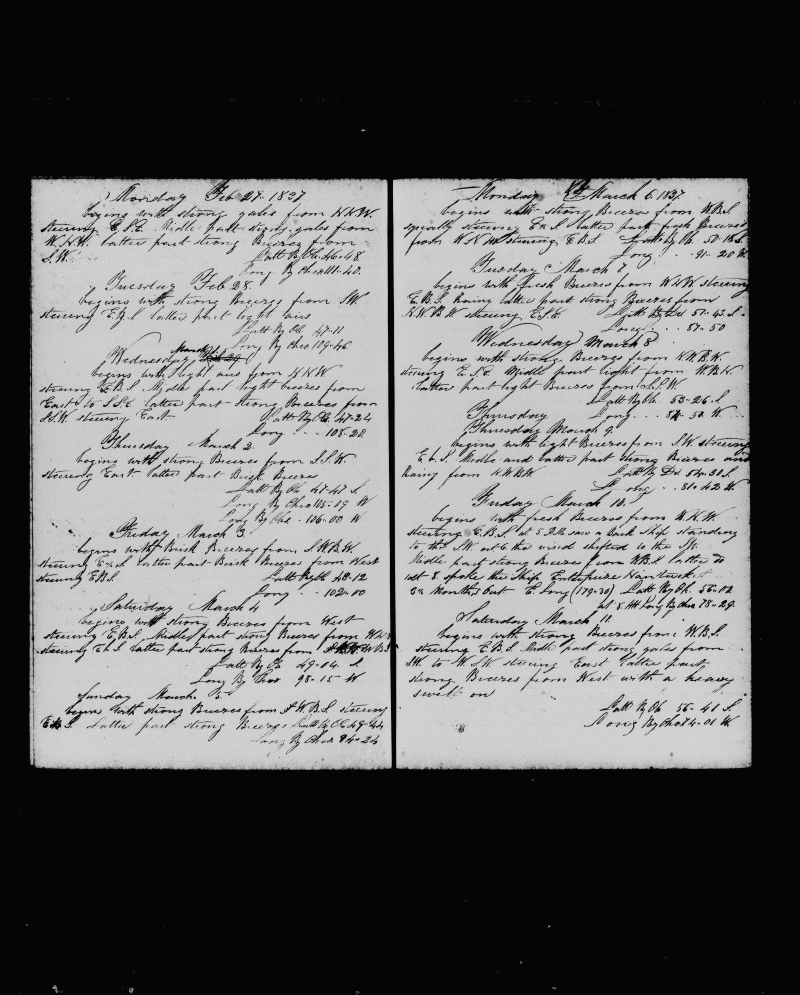 Monday Feb 27. 1837
begins with strong gales from N.N.W.
steering E.S.E. Midle part strong gales from
W.N.W. latter part strong Breezes from
S.W. Latt By Ob 46-48
Long By Chro 111-40.
Tuesday Feb 28.
begins with strong Breezes from S.W.
steering E.B.S latter part light airs
Latt By Ob. 47-11
Long By Chro 109-46
Wednesday March 1
begins with light airs from N.N.W
steering E.B.S Midle part light breezes from
East to S.S.E latter part Strong Breezes from
S.S.W. steering East Latt By Ob. 47-24
Long - - 108-28
Thursday March 2.
begins with strong Breezes from S.S.W.
steering East latter part Brisk Breezes
Latt By Ob 47-47 S.
Long By Chro 105-09 W
Long By Obs - 106-00 W
Friday March 3
begins with Brisk Breezes from S.W.B.W.
steering E&S latter part Brisk Breezes from West
steering E.B.S Latt By Ob 48-12
Long - 102-00
Saturday March 4
begins with strong Breezes from West
steering E.B.S. Midle part strong Breezes from W.N.W
steering E.b.S latter part strong Breezes from W.B.S
Latt By Ob 49-04. S.
Long By Chro 98-15 W
Sunday March 5
begins with strong Breezes from S.W.B.S. steering
E.B.S. Latter part strong Breezes Latt By Ob 49-44
Long By Chro 94-24
Monday March 6. 1837.
begins with strong Breezes from W.B.S
steering E.b.S latter part fresh Breezes
from W.N.W steering E.B.S Latt By Ob. 50-18 S.
Long - - 91-20 W.
Tuesday March 7
begins with fresh Breezes from W.N.W steering
E.B.S. haveing latter part strong Breezes from
N.W.B.W steering E.S.E. Latt By Dd 51-43 S.
Long - 87-50
Wednesday March 8
begins with strong Breezes from N.W.B.W.
steering E.S.E Midle part light from W.B.N
latter part light Breezes from S.S.W.
Latt By Ob. 53-26. S
Thursday Long - - - 84-50 W
Thursday March 9.
begins with light Breezes from S.W. steering
E.b.S. Midle and latter part strong Breezes and
haveing from N.W.B.W. Latt By Dd 54-30 S
Long - 81-42 W.
Friday March 10.
begins with fresh Breezes from W.N.W.
steering E.B.S. at 5 P.M. saw a Bark Ship standing
to the S.W. at 6 the wind shifted to the
Midle part strong Breezes from W.B.S latter do
at 8 spoke the Ship Enterprize Nantucket
Months Out Long (79-30) Latt By Ob. 56-02
at 8 AM Long By Chro 78-29.
Saturday March 11
begins with strong Breezes from W.B.S.
steering E.B.S. Midle part strong gales from
S.W. to W.S.W steering East latter part
strong Breezes from West with a heavy
swell on
Latt By Ob 56-41 S
Long By Chro 74-01 W